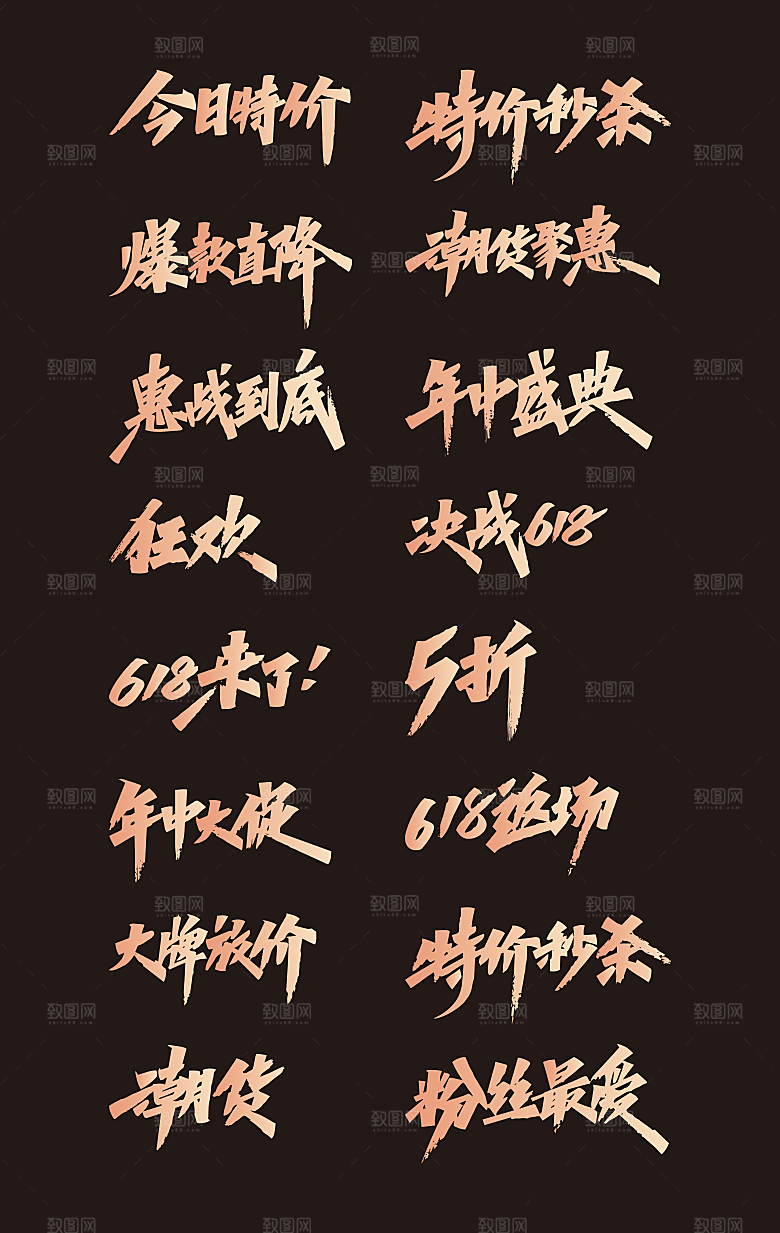 今日特价
特价秒杀
爆款直降
潮货聚惠
惠战到底
年中盛典
狂欢
决战618
618来了!
5折
年中大促
618返场
大牌放价
特价秒杀
潮货
粉丝最爱
致图网